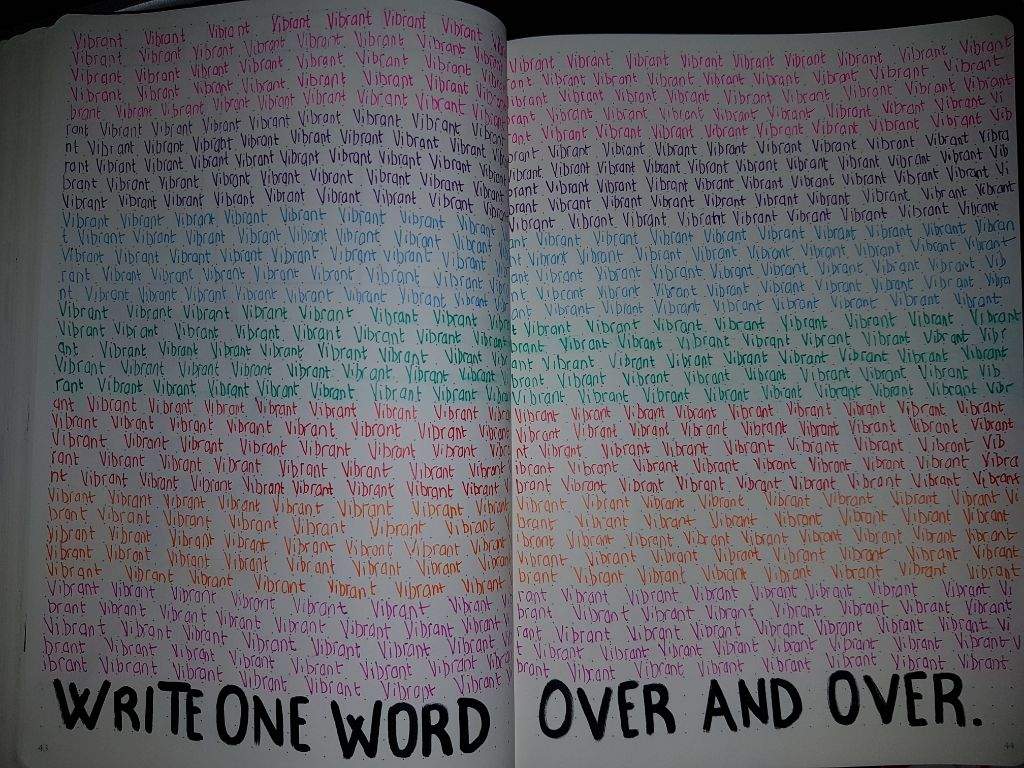 Vibrant Vibrant Vibrant Vibrant Vibrant Vibrant Vibrant
Vibrant Vibrant Vibrant Vibrant Vibrant Vibrant Vibrant Vibrant
Vibrant Vibrant Vibrant Vibrant Vibrant Vibrant Vibrant Vibrant
Vibrant Vibrant Vibrant Vibrant Vibrant Vibrant Vibrant
brant Vibrant Vibrant Vibrant Vibrant Vibrant Vibrant Vibrant
rant Vibrant Vibrant Vibrant Vibrant Vibrant Vibrant Vibrant
nt Vibrant Vibrant Vibrant Vibrant Vibrant Vibrant Vibrant
rant Vibrant Vibrant Vibrant Vibrant Vibrant Vibrant Vibrant
brant Vibrant Vibrant Vibrant Vibrant Vibrant Vibrant Vibrant
Vibrant Vibrant Vibrant Vibrant Vibrant Vibrant Vibrant
Vibrant Vibrant Vibrant Vibrant Vibrant Vibrant Vibrant Vibrant
t Vibrant Vibrant Vibrant Vibrant Vibrant Vibrant Vibrant Vibrant
Vibrant Vibrant Vibrant Vibrant Vibrant Vibrant Vibrant Vibrant
rant Vibrant Vibrant Vibrant Vibrant Vibrant Vibrant Vibrant
nt Vibrant Vibrant Vibrant Vibrant Vibrant Vibrant Vibrant
Vibrant Vibrant Vibrant Vibrant Vibrant Vibrant Vibrant
Vibrant Vibrant Vibrant Vibrant Vibrant Vibrant Vibrant
ant Vibrant Vibrant Vibrant Vibrant Vibrant Vibrant Vibrant
Vibrant Vibrant Vibrant Vibrant Vibrant Vibrant Vibrant Vibrant
rant Vibrant Vibrant Vibrant Vibrant Vibrant Vibrant Vibrant
ant Vibrant Vibrant Vibrant Vibrant Vibrant Vibrant Vibrant
Vibrant Vibrant Vibrant Vibrant Vibrant Vibrant Vibrant Vibrant
Vibrant Vibrant Vibrant Vibrant Vibrant Vibrant Vibrant
rant Vibrant Vibrant Vibrant Vibrant Vibrant Vibrant
nt Vibrant Vibrant Vibrant Vibrant Vibrant Vibrant Vibrant
Vibrant Vibrant Vibrant Vibrant Vibrant Vibrant Vibrant Vibrant
brant Vibrant Vibrant Vibrant Vibrant Vibrant Vibrant
Vibrant Vibrant Vibrant Vibrant Vibrant Vibrant Vibrant
Vibrant Vibrant Vibrant Vibrant Vibrant Vibrant Vibrant Vibrant
Vibrant Vibrant Vibrant Vibrant Vibrant Vibrant Vibrant
Vibrant Vibrant Vibrant Vibrant Vibrant Vibrant Vibrant
brant Vibrant Vibrant Vibrant Vibrant Vibrant Vibrant
Vibrant Vibrant Vibrant Vibrant Vibrant Vibrant Vibrant
brant Vibrant Vibrant Vibrant Vibrant Vibrant Vibrant
ibrant Vibrant Vibrant Vibrant Vibrant Vibrant Vibrant
WRITE ONE WORD
43
Vibrant Vibrant Vibrant Vibrant Vibrant Vibrant Vibrant Vibrant Vibrant
ant Vibrant Vibrant Vibrant Vibrant Vibrant Vibrant Vibrant Vibrant
brant Vibrant Vibrant Vibrant Vibrant Vibrant Vibrant Vibrant
rant Vibrant Vibrant Vibrant Vibrant Vibrant Vibrant Vibrant Vi
ant Vibrant Vibrant Vibrant Vibrant Vibrant Vibrant Vibrant Vib
brant Vibrant Vibrant Vibrant Vibrant Vibrant Vibrant Vibrant Vibra
Vibrant Vibrant Vibrant Vibrant Vibrant Vibrant Vibrant Vibrant Vib
brant Vibrant Vibrant Vibrant Vibrant Vibrant Vibrant Vibrant Vi
brant Vibrant Vibrant Vibrant Vibrant Vibrant Vibrant Vibrant
brant Vibrant Vibrant Vibrant Vibrant Vibrant Vibrant Vibrant
ant Vibrant Vibrant Vibrant Vibrant Vibrant Vibrant Vibran
nt Vibrant Vibrant Vibrant Vibrant Vibrant Vibrant Vibrant
nt Vibrant Vibrant Vibrant Vibrant Vibrant Vibrant Vibrant Vib
nt Vibrant Vibrant Vibrant Vibrant Vibrant Vibrant Vibrant Vibra
Vibrant Vibrant Vibrant Vibrant Vibrant Vibrant Vibrant Vibrant
t Vibrant Vibrant Vibrant Vibrant Vibrant Vibrant Vibrant
brant Vibrant Vibrant Vibrant Vibrant Vibrant Vibrant Vibr
ant Vibrant Vibrant Vibrant Vibrant Vibrant Vibrant Vibrant
brant Vibrant Vibrant Vibrant Vibrant Vibrant Vibrant Vib
Vibrant Vibrant Vibrant Vibrant Vibrant Vibrant Vibrant Vibr
Vibrant Vibrant Vibrant Vibrant Vibrant Vibrant Vibrant Vibrant
Vibrant Vibrant Vibrant Vibrant Vibrant Vibrant Vibrant Vibrant
nt Vibrant Vibrant Vibrant Vibrant Vibrant Vibrant Vib
ibrant Vibrant Vibrant Vibrant Vibrant Vibrant Vibrant Vibra
brant Vibrant Vibrant Vibrant Vibrant Vibrant Vibrant Vibrant
Vibrant Vibrant Vibrant Vibrant Vibrant Vibrant Vibrant Vi
brant Vibrant Vibrant Vibrant Vibrant Vibrant Vibrant
brant Vibrant Vibrant Vibrant Vibrant Vibrant Vibrant Vibrant
Vibrant Vibrant Vibrant Vibrant Vibrant Vibrant Vibrant Vibrant
brant Vibrant Vibrant Vibrant Vibrant Vibrant Vibrant
rant Vibrant Vibrant Vibrant Vibrant Vibrant Vibrant Vi
brant Vibrant Vibrant Vibrant Vibrant Vibrant Vibrant Vibrant
rant Vibrant Vibrant Vibrant Vibrant Vibrant Vibrant Vi
t Vibrant Vibrant Vibrant Vibrant Vibrant Vibrant Vibrant V
brant Vibrant Vibrant Vibrant Vibrant Vibrant Vibrant Vibrant
OVER AND OVER.
44